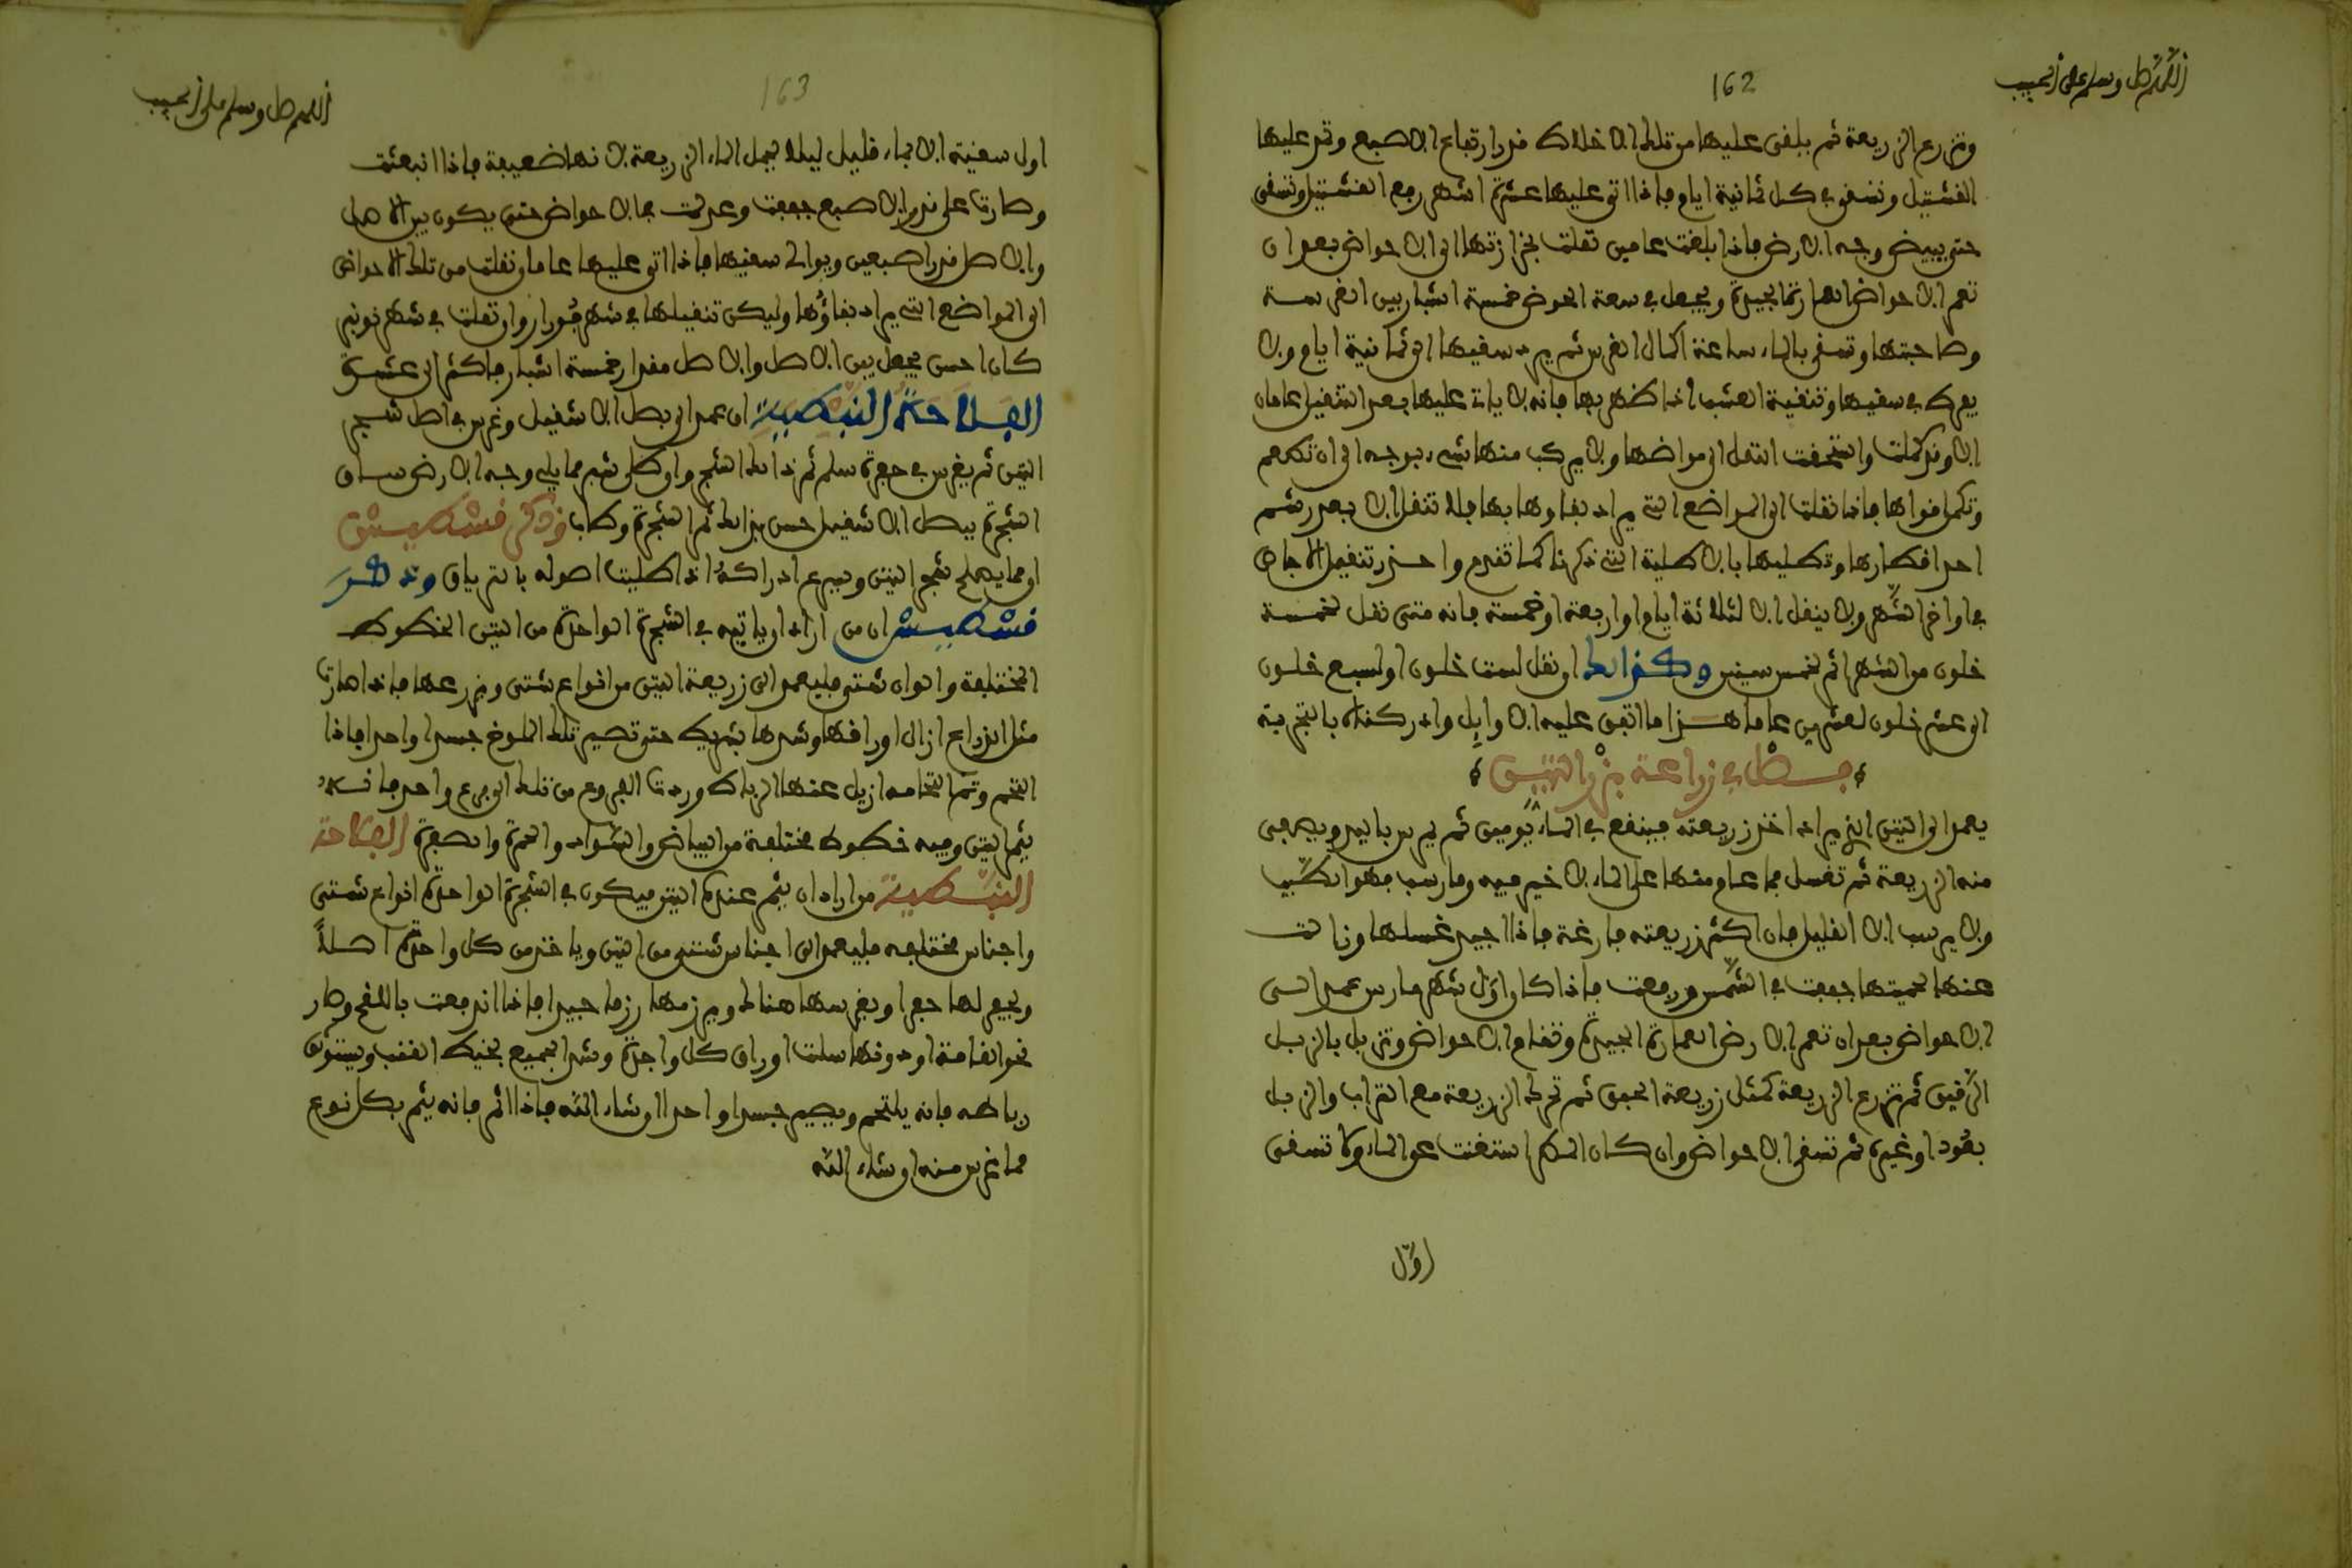 اللهم صل وسلم على الحبيب
162
وتزرع الزريعة ثم يلقى عليها من تلك الاخلاط قدر ارتفاع الاصبع وتمد عليها
القشتيل وتسقى في كل ثمانية ايام فاذا اتى عليها عشرة اشهر رفع القشتيل وتسقى
حتى يبيض وجه الارض فاذا بلغت عامين نقلت بخزازتها الى الاحواض بعد ان
تعمر الاحواض العمارة الجيدة ويجعل في سعة الحوض خمسة اشبار بين الغرسة
وصاحبتها وتسقى بالماء ساعة اكمال الغرس ثم يرد سقيها الى ثمانية ايام ولا
يفرط في سقيها وتنقية العشب اذا ظهر بها فانه لا يات عليها بعد التنقيل عامان
الا وقد كملت واستحقت النقل الى مواضها ولا يركب منها شيء بوجه الى ان تطعم
وتكمل فواها فاذا نقلت الى المواضع التي يراد بقاوها بها فلا تنقل الا بعد رشم
احد اقطارها وتطليها بالاطلية التي ذكرنا كما تقدم واحذر تنقيل الاجاص
في اواخر الشهر ولا ينقل الا لثلاثة ايام او اربعة او خمسة فانه متى نقل لخمسة
خلون من الشهر اثمر لخمس سنين وكذالك ان نقل لست خلون او لسبع خلون
الى عشر خلون لعشرين عاما هذا ما اتفق عليه الاوايل وادركناه بالتجربة
فصل في زراعة بزر التين
يعمد الى التين الذي يراد اخذ زريعته فينقع في الماء يومين ثم يمرس باليد ويصفى
منه الزريعة ثم تغسل فما عام منها على الماء لا خير فيه وما رسب فهو الطيب
ولا يرسب الا القليل فان اكثر زريعته فارغة فاذا اجيد غسلها وزالت
عنها لحميتها جففت في الشمس ورفعت فاذا كان اول شهر مارس عمد الى
الاحواض بعد ان تعمر الارض العمارة الجيدة وتقام الاحواض وتزبل بالزبل
الرقيق ثم تزرع الزريعة كمثل زريعة الحبق ثم تحرك الزريعة مع التراب والزبل
بعود او غيره ثم تسقى الاحواض وان كان المطر استغنت عن الماء ولا تسقى
اول
اللهم صل وسلم على الحبيب
163
اول سقية الا بماء قليل ليلا يحمل الماء الزريعة لانها ضعيفة فاذا انبعثت
وصارت على قدر الاصبع خففت وعدلت بها الاحواض حتى يكون بين الاصل
والاصل قدر اصبعين ويوالى سقيها فاذا اتى عليها عاما ونقلت من تلك الاحواض
الى المواضع التي يراد بقاؤها وليكن تنقيلها في شهر فورار وان نقلت في شهر نونبر
كان احسن يجعل بين الاصل والاصل مقدار خمسة اشبار فاكثر الى عشرة
الفلاحة النبطية ان عمد الى بصل الاشقيل وغرس في اصل شجر
التين ثم يغرس في حفرة سلم ثمر ذالك الشجر وان طلى شبر مما يلي وجه الارض ساق
الشجرة ببصل الاشقيل حسن بذالك ثمر الشجرة وطاب وذكر قسطيسش
ان مما يصلح شجر التين ويسرع ادراكه اذا طليت اصوله بالترياق وذكر
قسطيسش ان من اراد ان ياتيه في الشجرة الواحدة من التين الخطوط
المختلفة والوان شتى فليعمد الى زريعة التين من انواع شتى ويزرعها فاذا صارت
مثل الذراع ازال اوراقها وشدها بشريط حتى تصير تلك الملوخ جسدا واحدا فاذا
التحم وتم التحامه ازيل عنها الرباط وردت الفروع من تلك الى فرع واحد فانه
يثمر التين وفيه خطوط مختلفة من البياض والسواد والحمرة والصفرة الفلاحة
النبطية من اراد ان يثمر عنده التين فيكون في الشجرة الواحدة انواع شتى
واجناس مختلفه فليعمد الى اجناس شتى من التين وياخذ من كل واحدة اصلا
ويحفر لها حفرا ويغرسها هنالك ويرزمها رزما جيدا فاذا اندفعت باللقح وصار
نحو القامة او دونها سلت اوراق كل واحدة وشد الجميع بخيط القنب ويستوثق
رباطه فانه يلتحم ويصير جسدا واحدا ان شاء الله فاذا اثمر فانه يثمر بكل نوع
مما غرس منه ان شاء الله